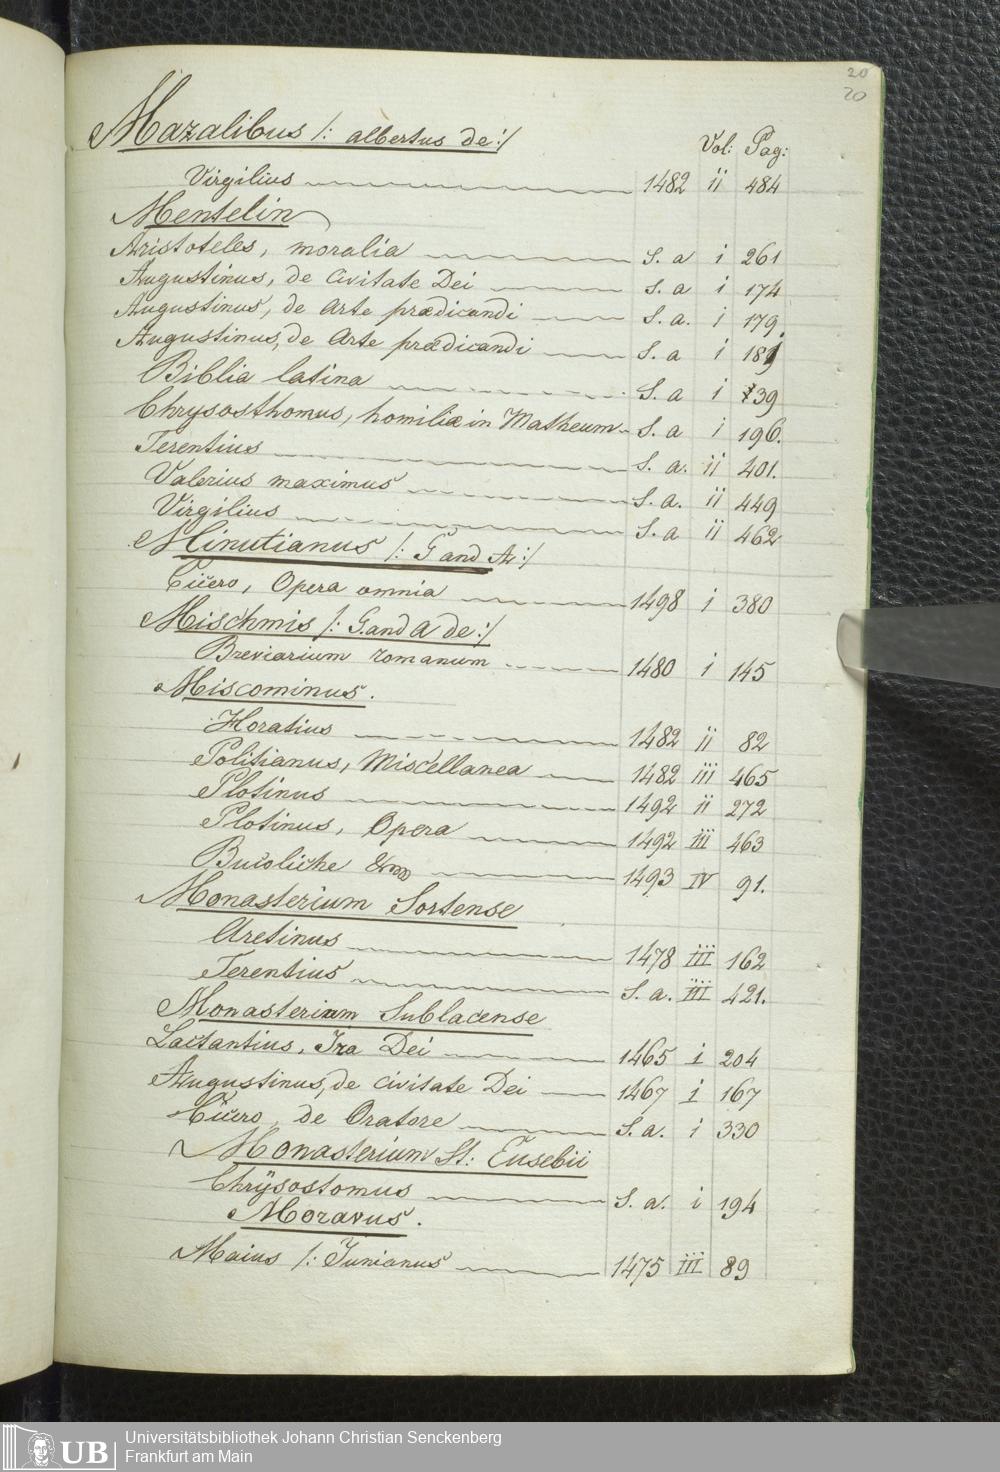 20
20
Mazalibus /: albertus de :/ Vol: Pag:
Virgilius 1482 ii 484
Mentelin
Aristoteles, moralia s. a i 261
Augustinus, de Civitate Dei s. a i 174
Augustinus, de Arte prædicandi s. a. i 179.
Augustinus, de Arte prædicandi s. a i 181
Biblia latina s. a i 139
Chrysosthomus, homiliæ in Matheum s. a i 196.
Terentius s. a. ii 401.
Valerius maximus s. a. ii 449
Virgilius s. a ii 462
Minutianus /: G and Ar :/
Cicero, Opera omnia 1498 i 380
Mischinis /: G. and A de :/
Breviarium romanum 1480 i 145
Miscominus.
Horatius 1482 ii 82
Politianus, Miscellanea 1482 iii 465
Plotinus 1492 ii 272
Plotinus, Opera 1492 iii 463
Bucoliche 1493 IV 91.
Monasterium Sortense
Aretinus 1478 iii 162
Terentius s. a. iii 421.
Monasterium Sublacense
Lactantius, Ira Dei 1465 i 204
Augustinus, de Civitate Dei 1467 i 167
Cicero, de Oratore s. a. i 330
Monasterium St: Eusebii
Chrÿsostomus s. a. i 194
Moravus.
Maius /: Junianus 1475 iii 89
UB Universitätsbibliothek Johann Christian Senckenberg
Frankfurt am Main